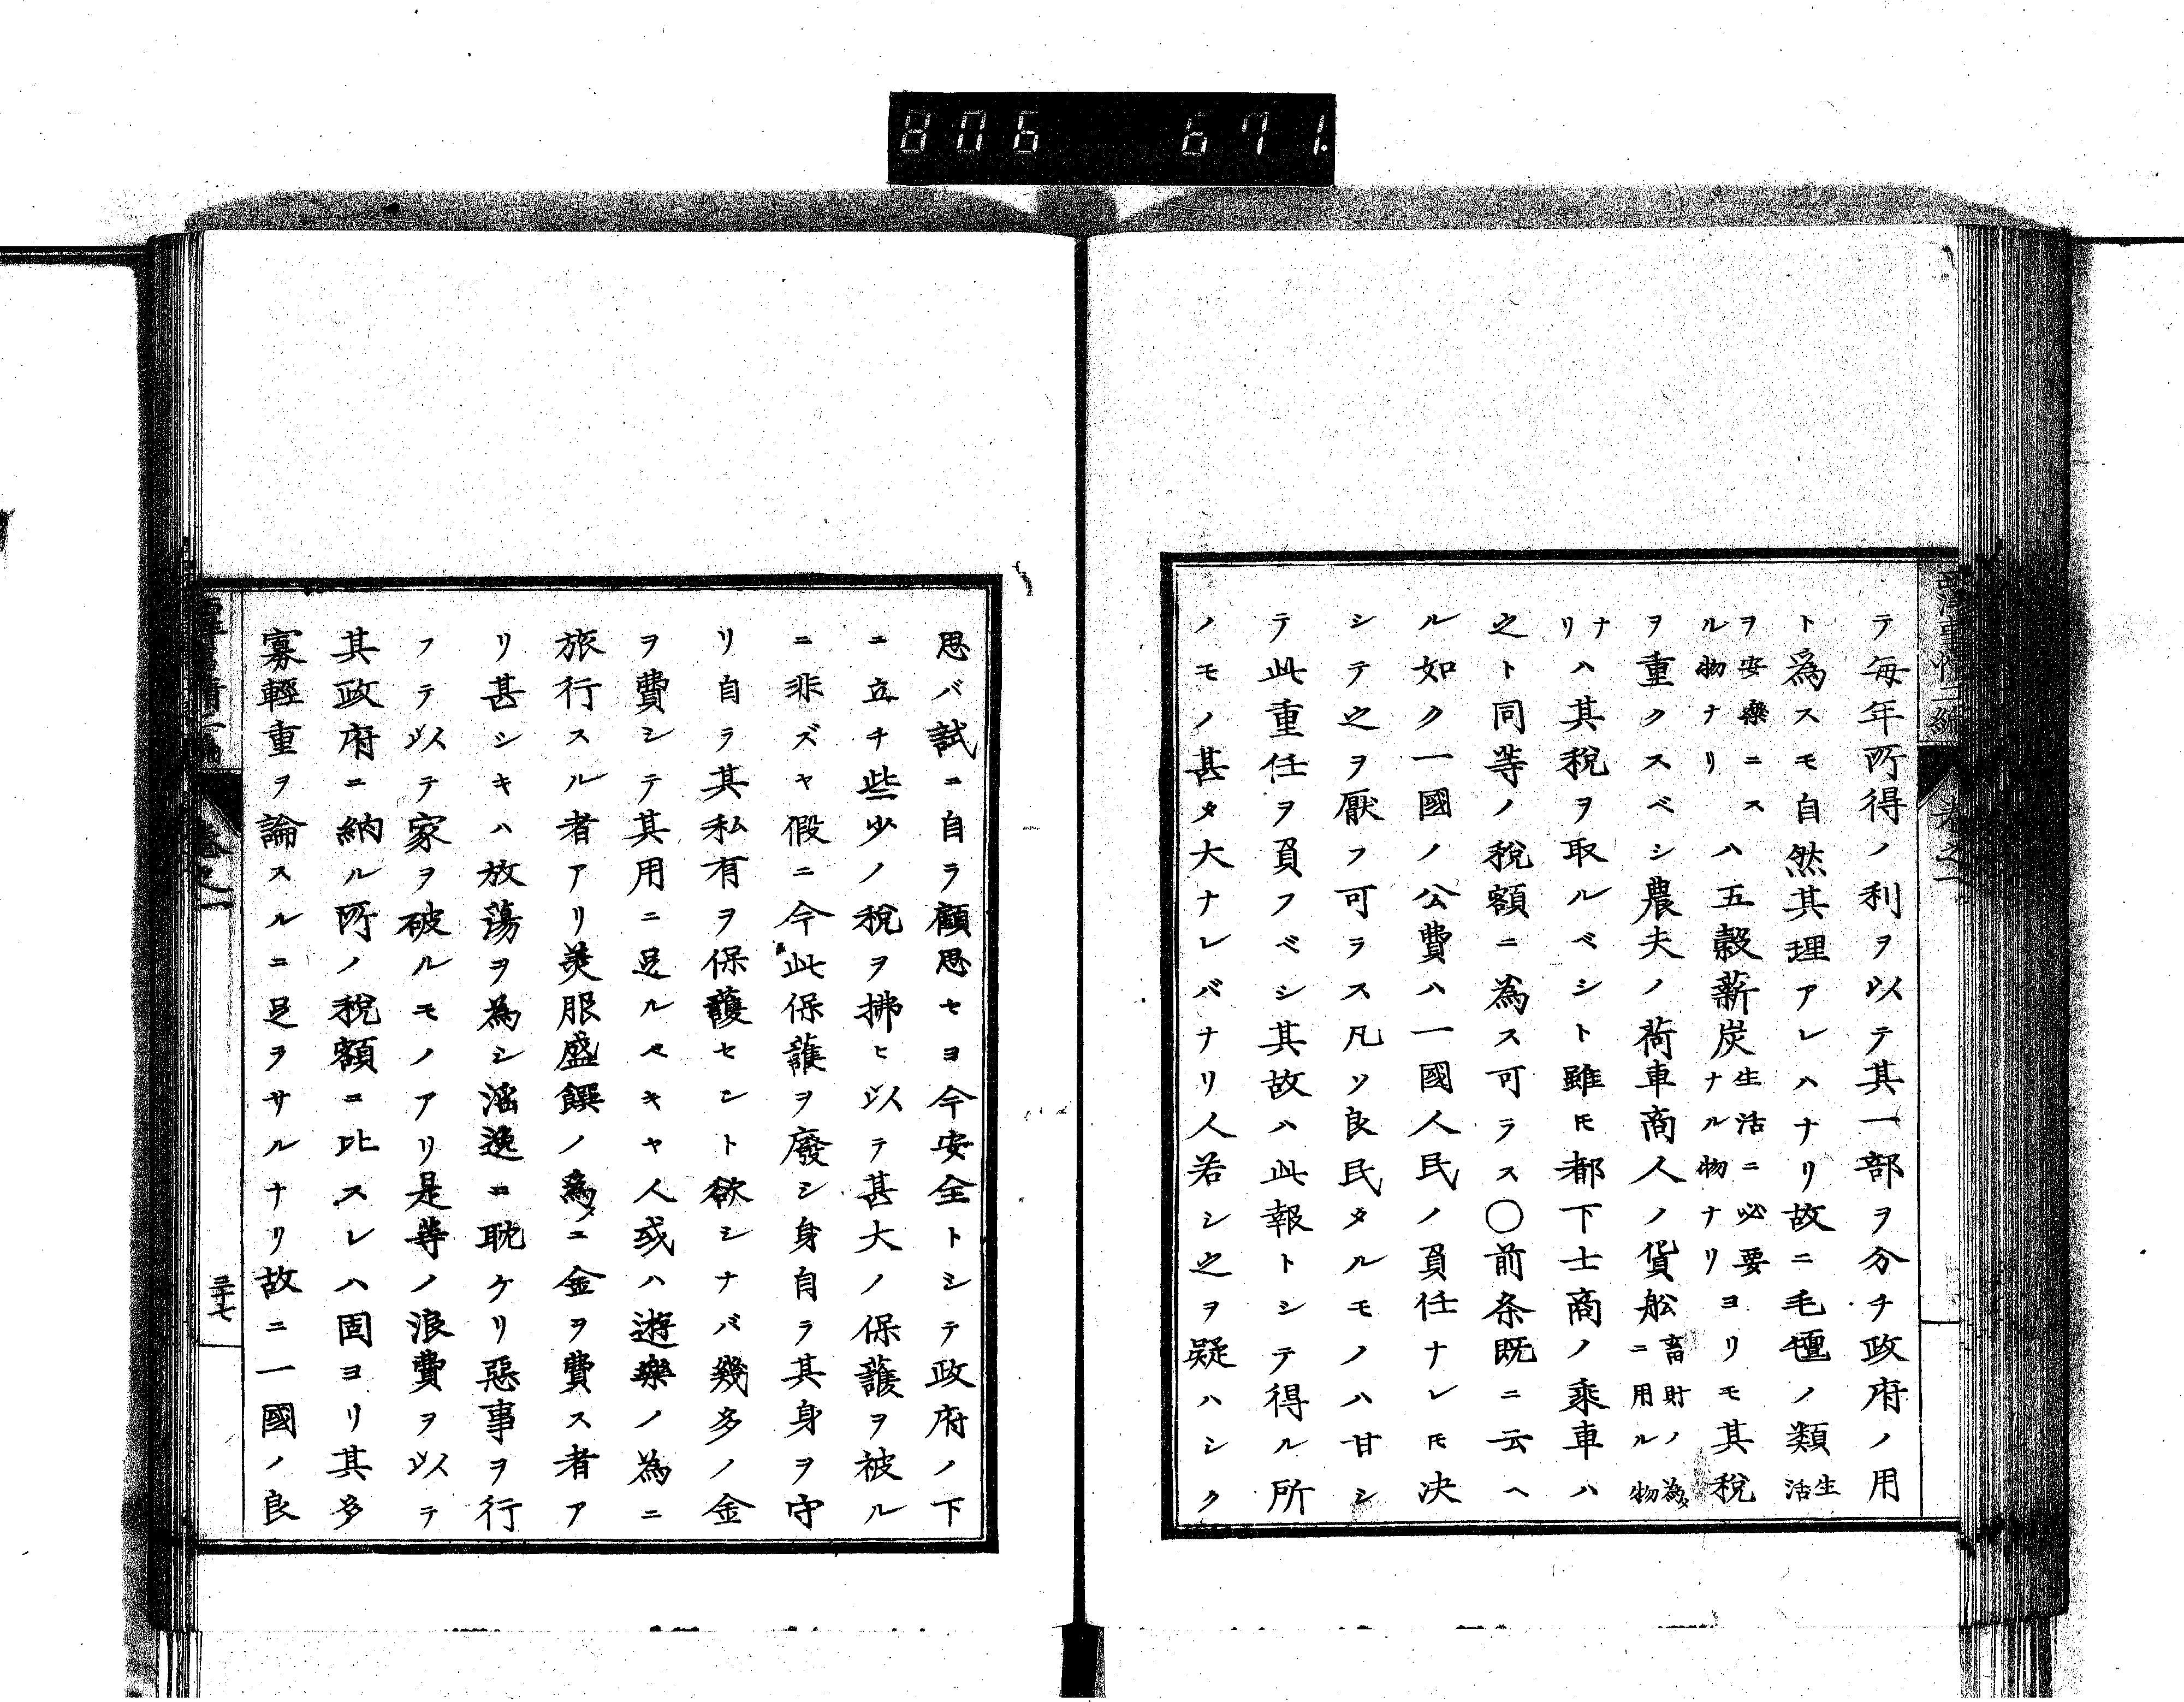 806 671.
西洋事情二編 卷之一
テ毎年所得ノ利ヲ以テ其一部ヲ分チ政府ノ用
ト爲スモ自然其理アレハナリ故ニ毛氊ノ類生活
ヲ安樂ニスル物ナリハ五穀薪炭生活ニ必要ナル物ナリヨリモ其稅
ヲ重クスベシ農夫ノ荷車商人ノ貨舩畜財ノ為メニ用ル物
ナリハ其稅ヲ取ルベシト雖𪜈都下士商ノ乘車ハ
之ト同等ノ稅額ニ為ス可ラス〇前条既ニ云ヘ
ル如ク一國ノ公費ハ一國人民ノ負任ナレ𪜈决
シテ之ヲ厭フ可ラス凡ソ良民タルモノハ甘シ
テ此重任ヲ負フベシ其故ハ此報トシテ得ル所
ノモノ甚タ大ナレバナリ人若シ之ヲ疑ハシク
思バ試ニ自ラ顧思セヨ今安全トシテ政府ノ下
ニ立チ些少ノ稅ヲ拂ヒ以テ甚大ノ保護ヲ被ル
ニ非ズヤ假ニ今此保護ヲ廢シ身自ラ其身ヲ守
リ自ラ其私有ヲ保護セント欲シナバ幾多ノ金
ヲ費シテ其用ニ足ルベキヤ人或ハ遊樂ノ為ニ
旅行スル者アリ美服盛饌ノ為メニ金ヲ費ス者ア
リ甚シキハ放蕩ヲ為シ滛逸ニ耽ケリ惡事ヲ行
フテ以テ家ヲ破ルモノアリ是等ノ浪費ヲ以テ
其政府ニ納ル所ノ稅額ニ比スレハ固ヨリ其多
寡輕重ヲ論スルニ足ヲサルナリ故ニ一國ノ良
西洋事情二編 卷之一 三十七